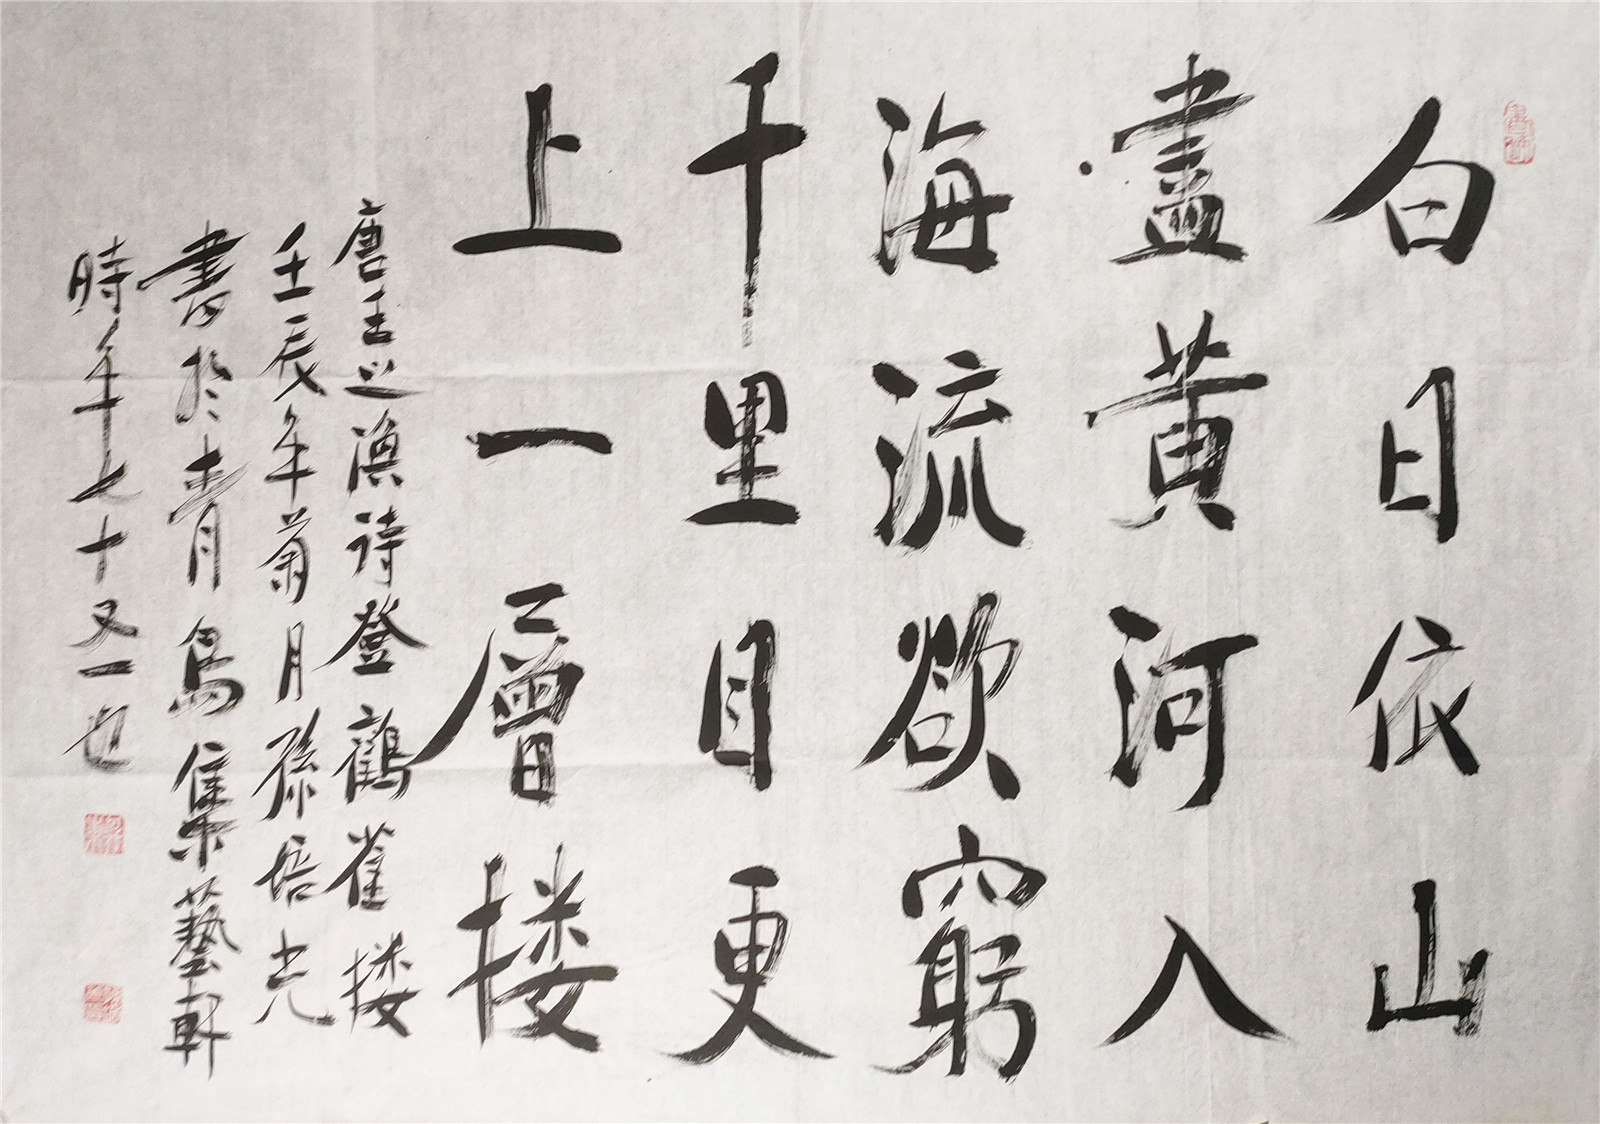 白日依山
盡黄河入
海流欲窮
千里目更
上一層楼
唐王之渙诗登鸛雀楼
壬辰年菊月孫培光
書於青島集藝軒
時年七十又一也